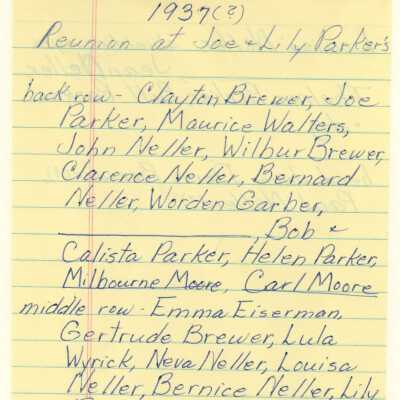 1937(?)
Reunion at Joe & Lily Parker's
back row - Clayton Brewer, Joe
Parker, Maurice Walters,
John Neller, Wilbur Brewer,
Clarence Neller, Bernard
Neller, Worden Garber,
____________, Bob &
Calista Parker, Helen Parker,
Milbourne Moore, Carl Moore
middle row - Emma Eiserman,
Gertrude Brewer, Lula
Wyrick, Neva Neller, Louisa
Neller, Bernice Neller, Lily